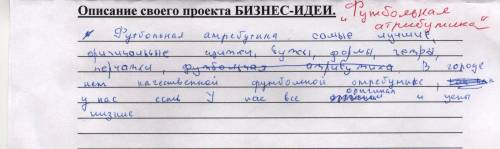 Описание своего проекта БИЗНЕС-ИДЕИ. "Футбольная атрибутика"
* Футбольная атрибутика самые лучшие,
оригинальные щитки, бутсы, формы, гетры,
перчатки, футбольная атрибутика В городе
нет качественной футболной атребутике,
у нас есть У нас все оригинал и цены
низкие